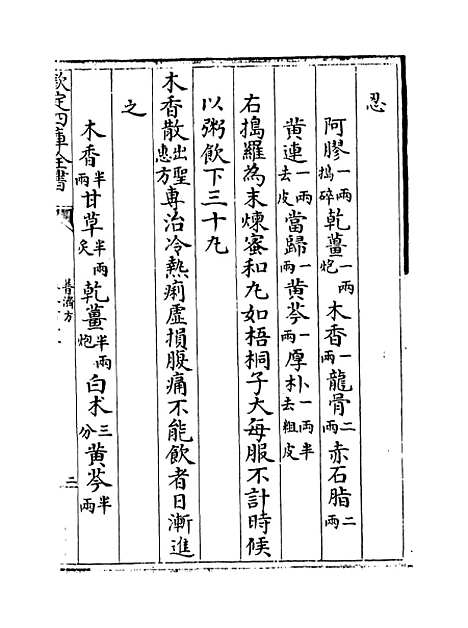 忍
阿膠一兩搗碎乾薑一兩炮木香一兩龍骨二兩赤石脂二兩
黄連一兩去皮當歸一兩黄芩一兩厚朴一兩半去粗皮
右搗羅為末煉蜜和丸如梧桐子大每服不計時候
以粥飲下三十丸
木香散出聖惠方專治冷熱痢虛損腹痛不能飲者日漸進
之
木香半兩甘草半兩炙乾薑半兩炮白术三分黄芩半兩
欽定四庫全書
普濟方